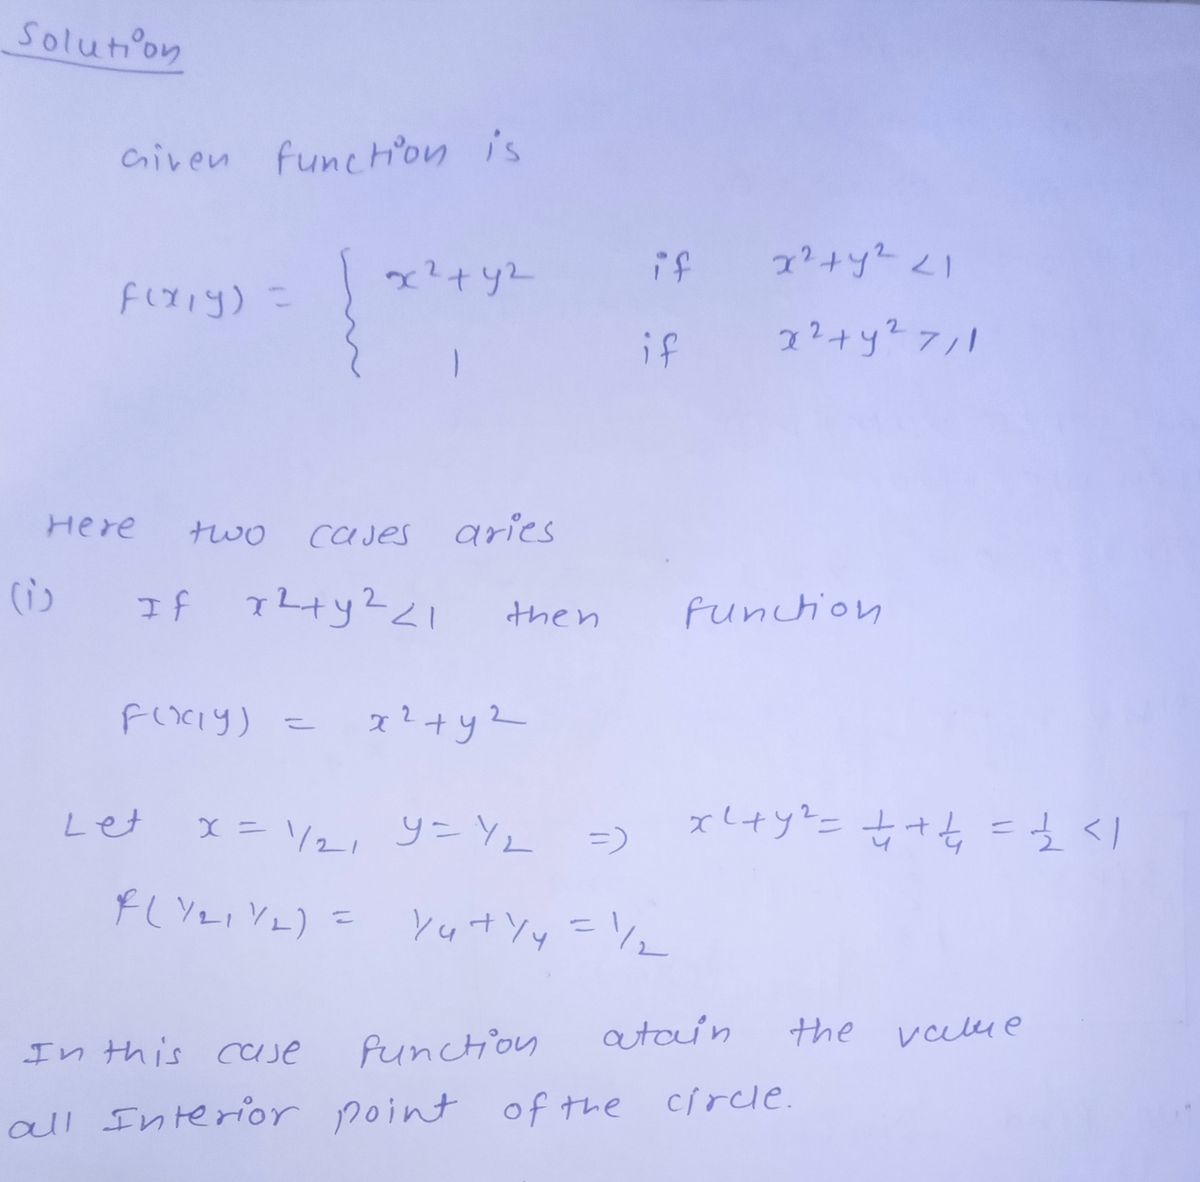 Solution
Given function is
f(x,y) = { x²+y² if x²+y² <1
1 if x²+y² ≥1
Here two cases aries
(i) If x²+y²<1 then function
f(x,y) = x²+y²
Let x = 1/2, y = 1/2 => x²+y² = 1/4 + 1/4 = 1/2 <1
f(1/2, 1/2) = 1/4 + 1/4 = 1/2
In this case function atain the value
all Interior point of the circle.